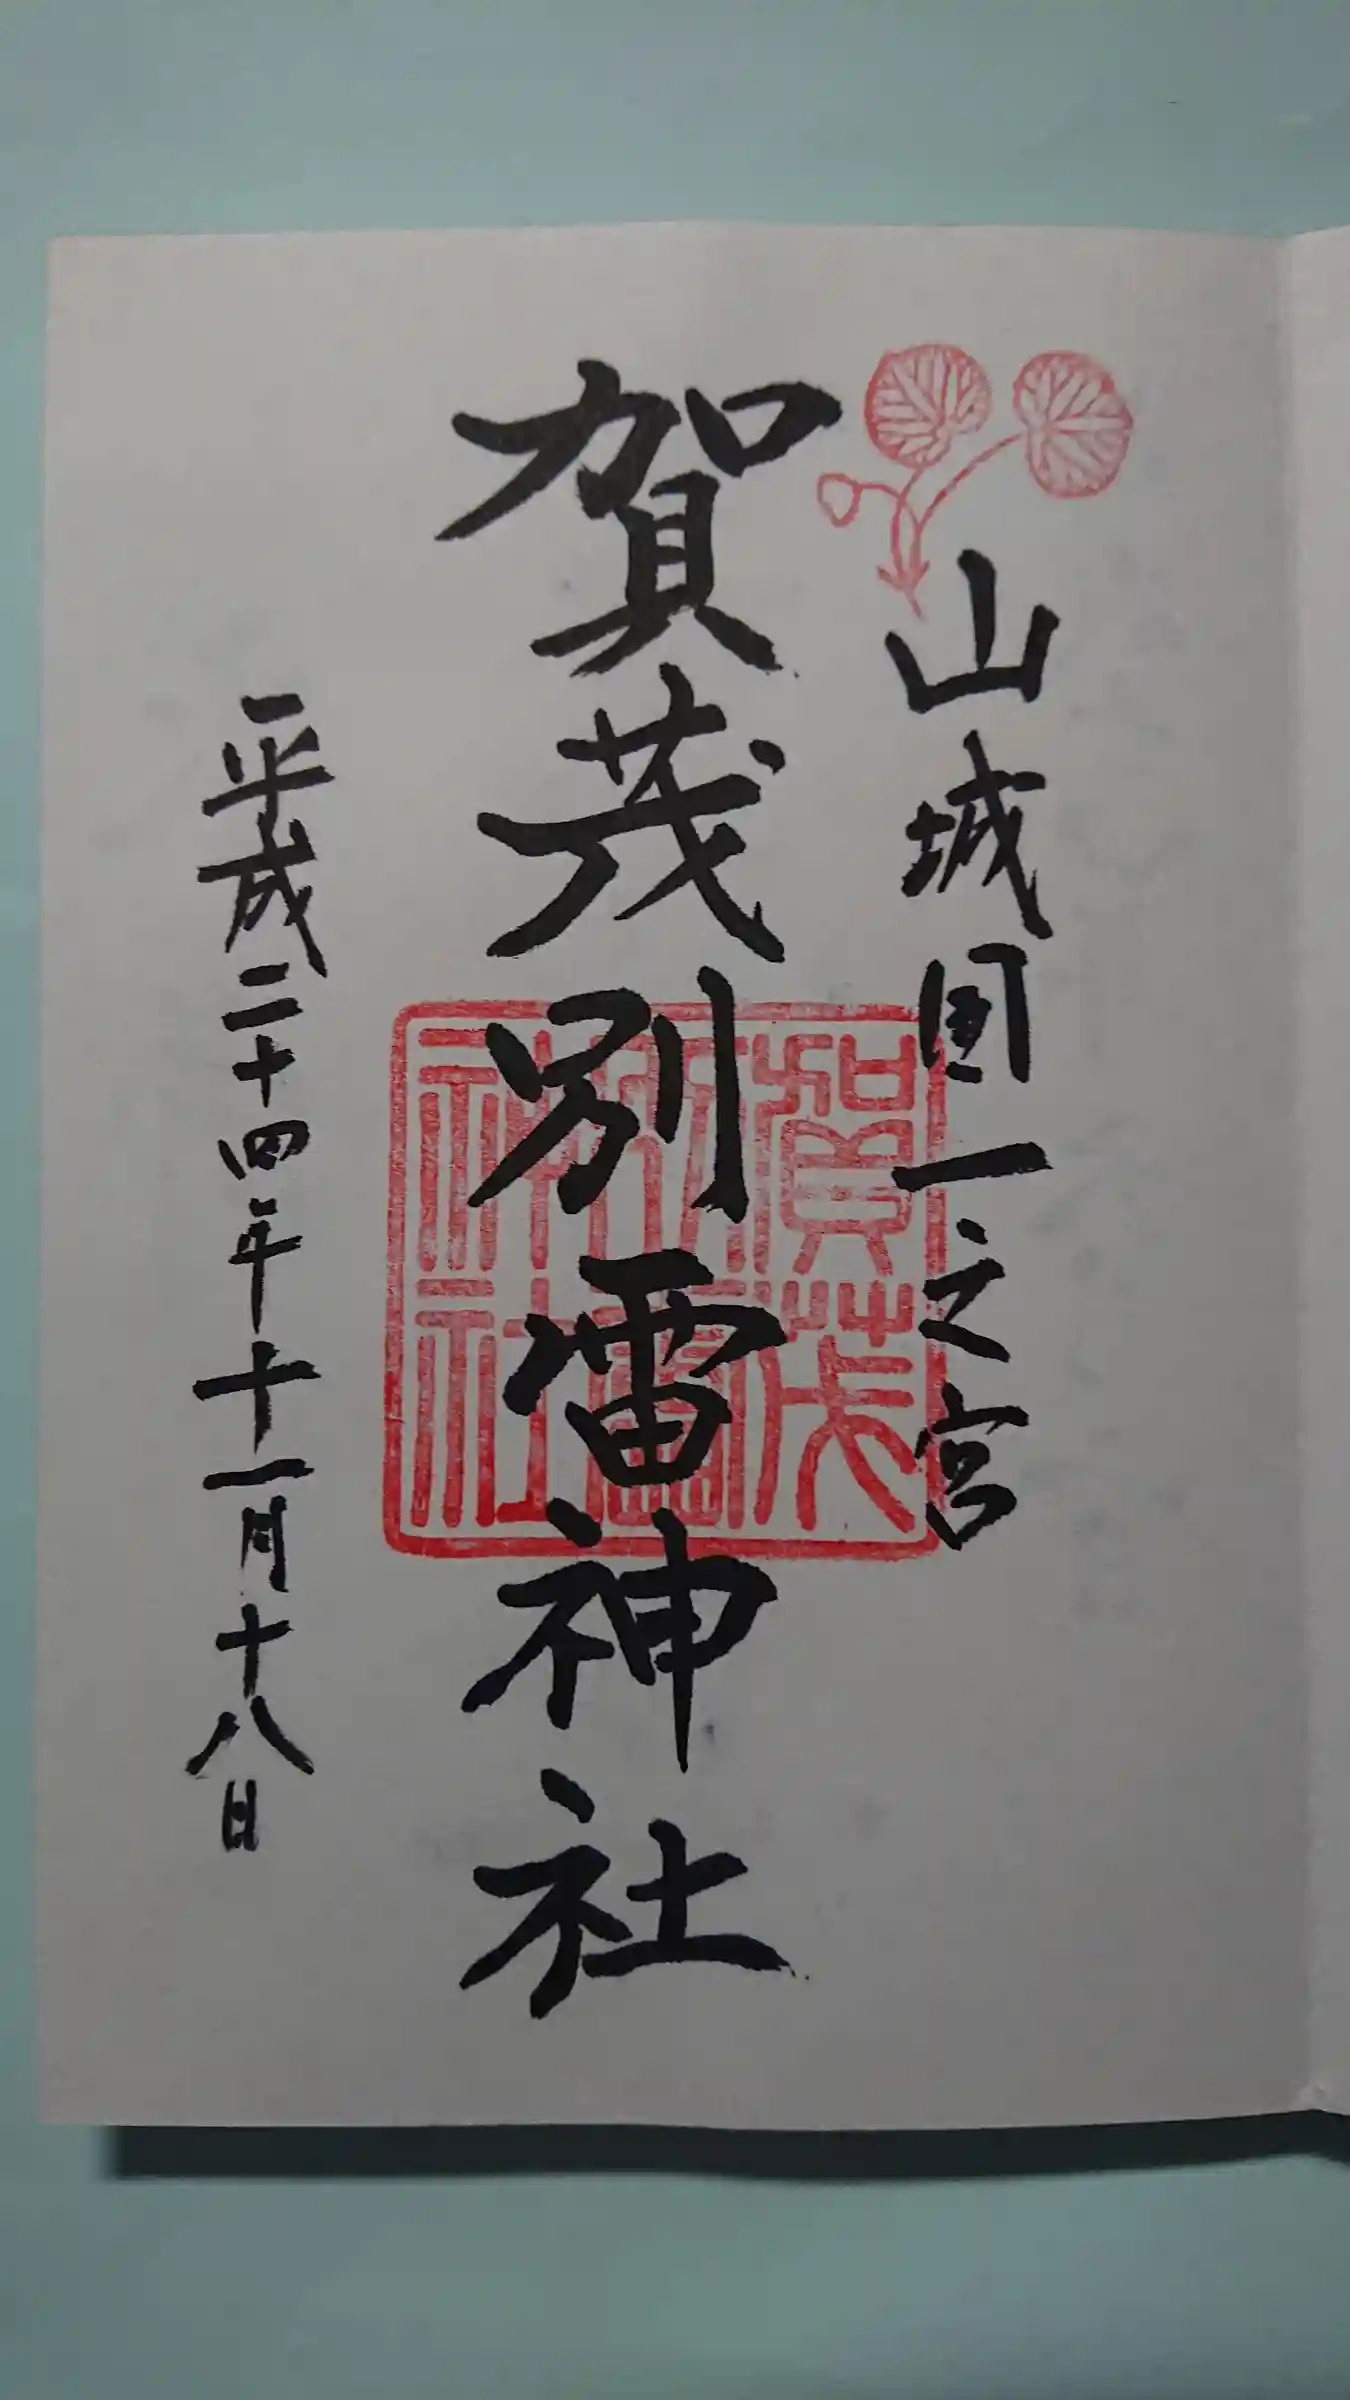 山城国一之宮
賀茂別雷神社
平成二十四年十一月十八日
賀茂
別雷
神社